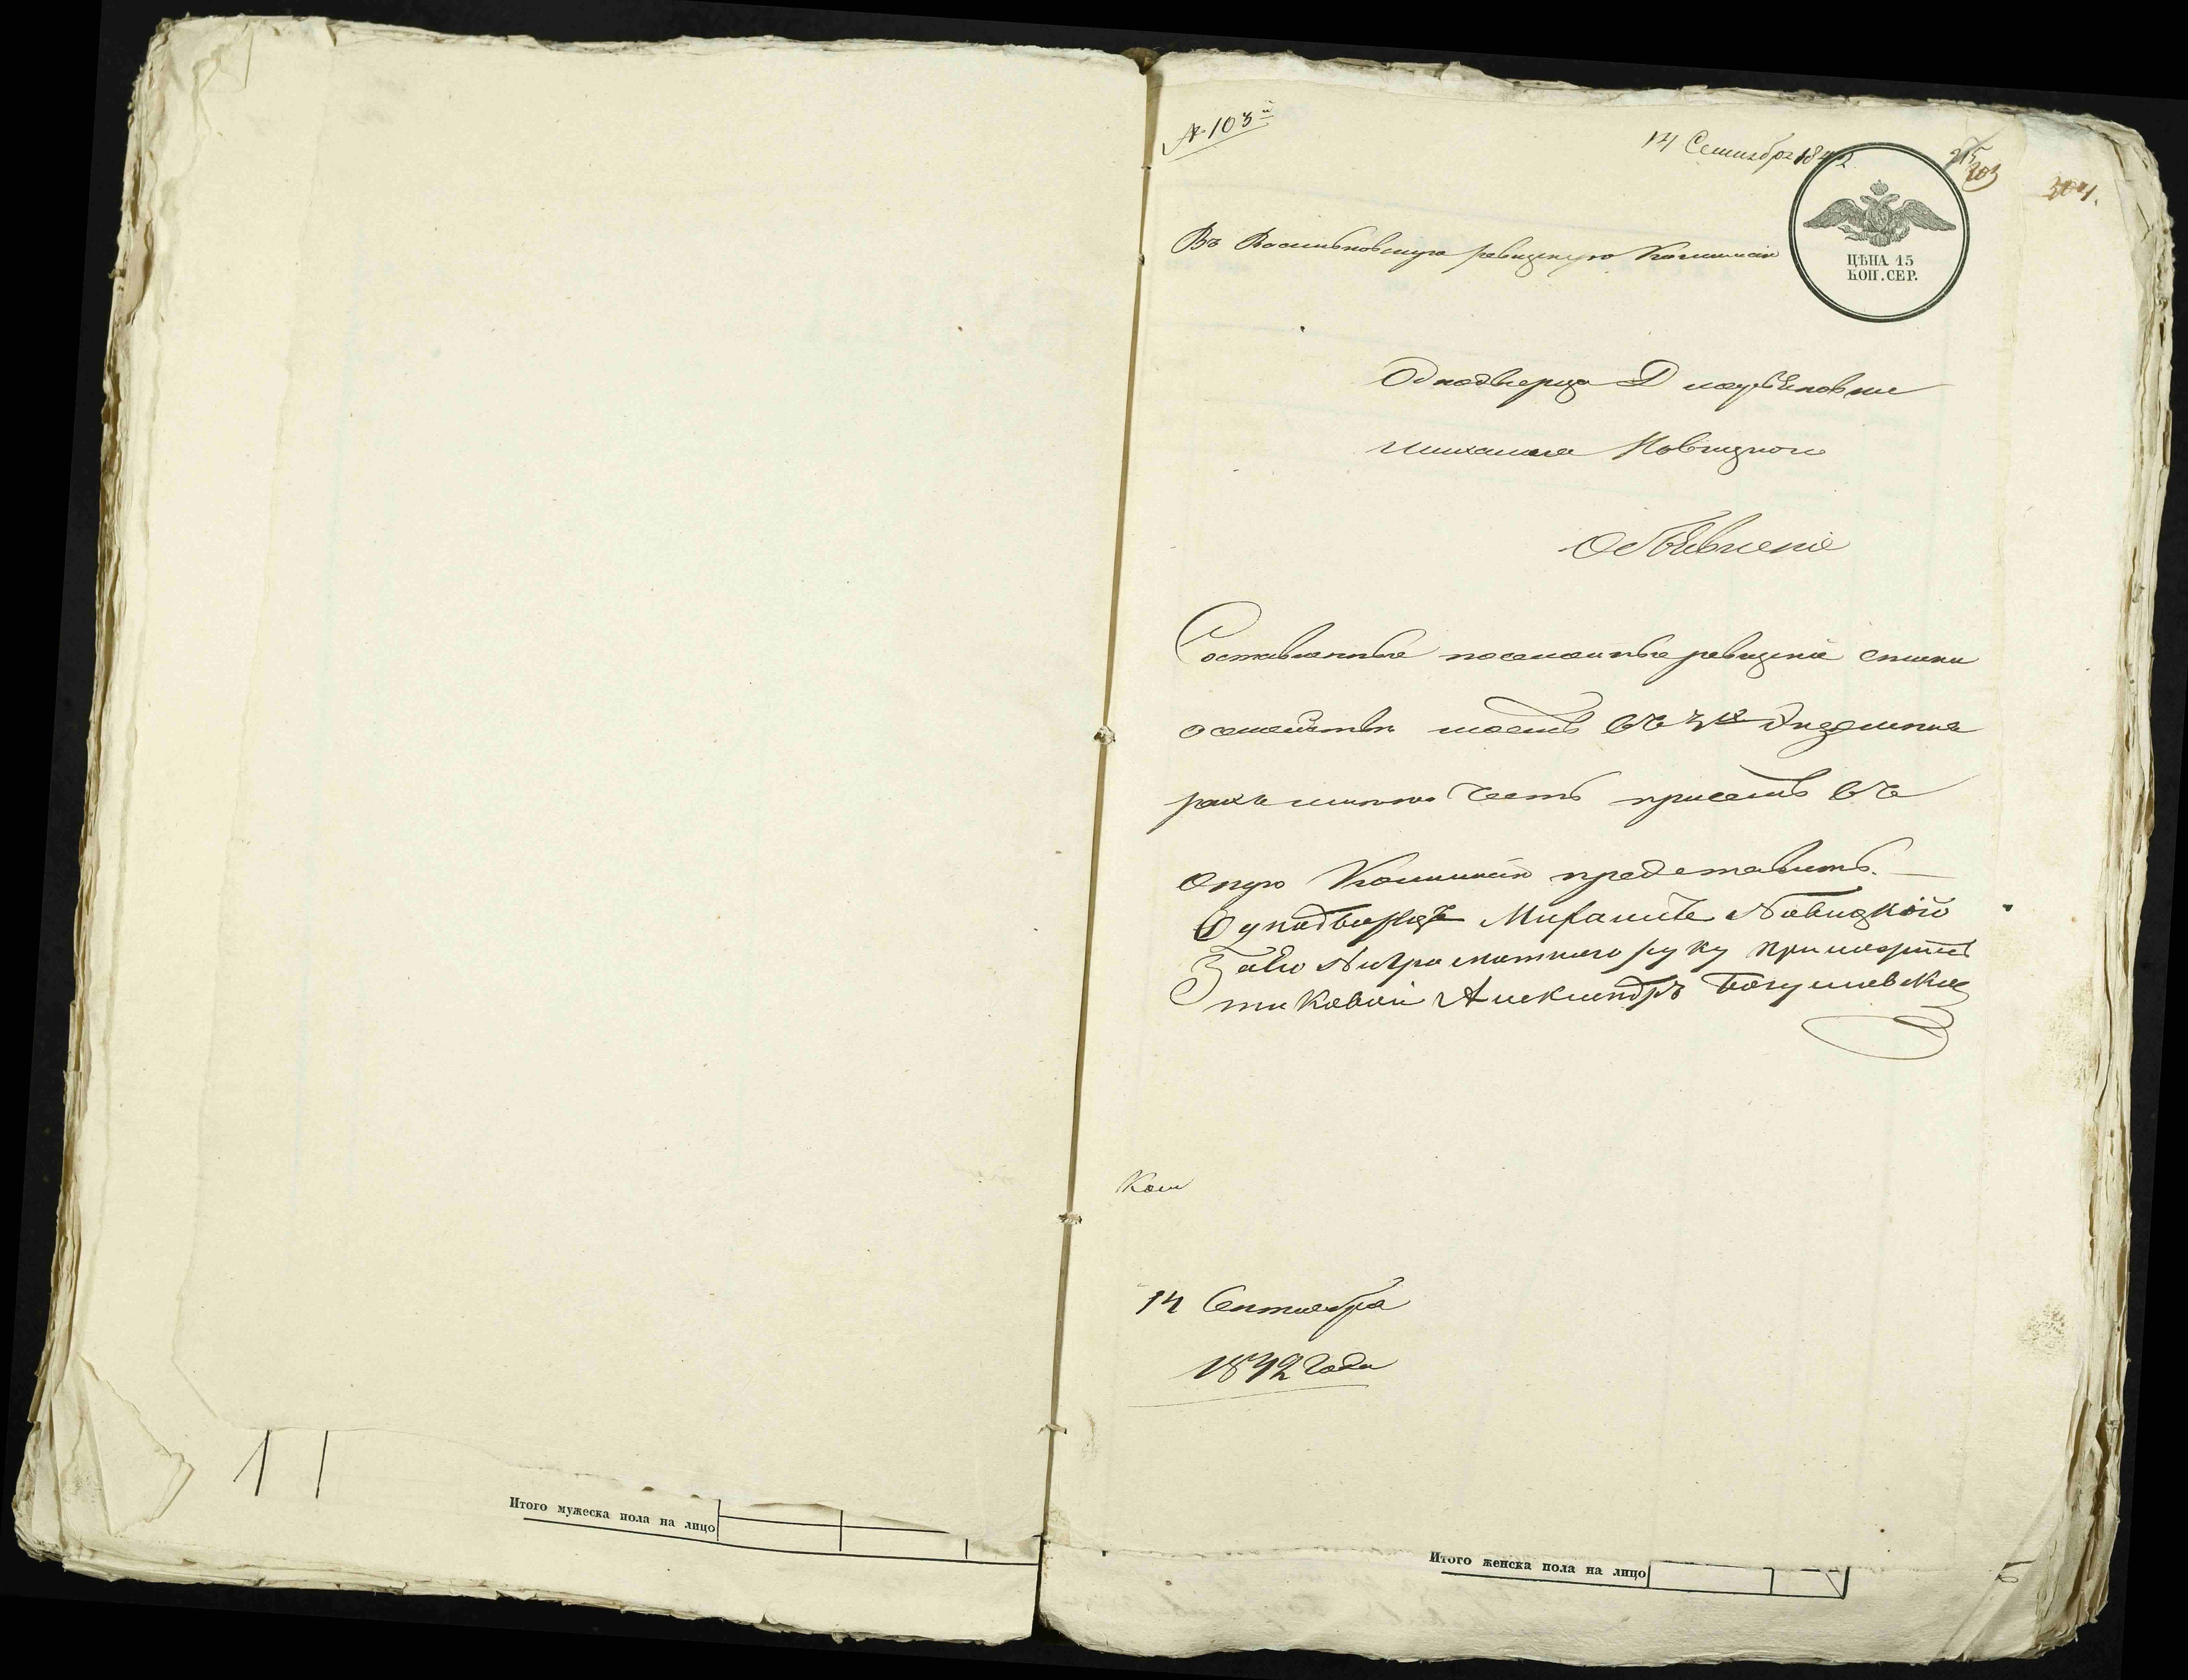 № 103й
14 Сентября 1842
203
304.
Въ Васильковскую ревизскую Коммисію
ЦѢНА 15
КОП. СЕР.
Однодворца
Михаила Новицкого
Объявленіе
Составленные посемейные ревизскіе списки
о семействе моемъ въ 3х экземпля
рахъ имею честь присемъ въ
оную Комисію представить.
Однодворецъ Михаилъ Новицкій
а за его неграмотного руку приложилъ
таковой Александръ Богушевскій
Ком
14 Сентября
1842 года
Итого мужеска пола на лицо
Итого женска пола на лицо